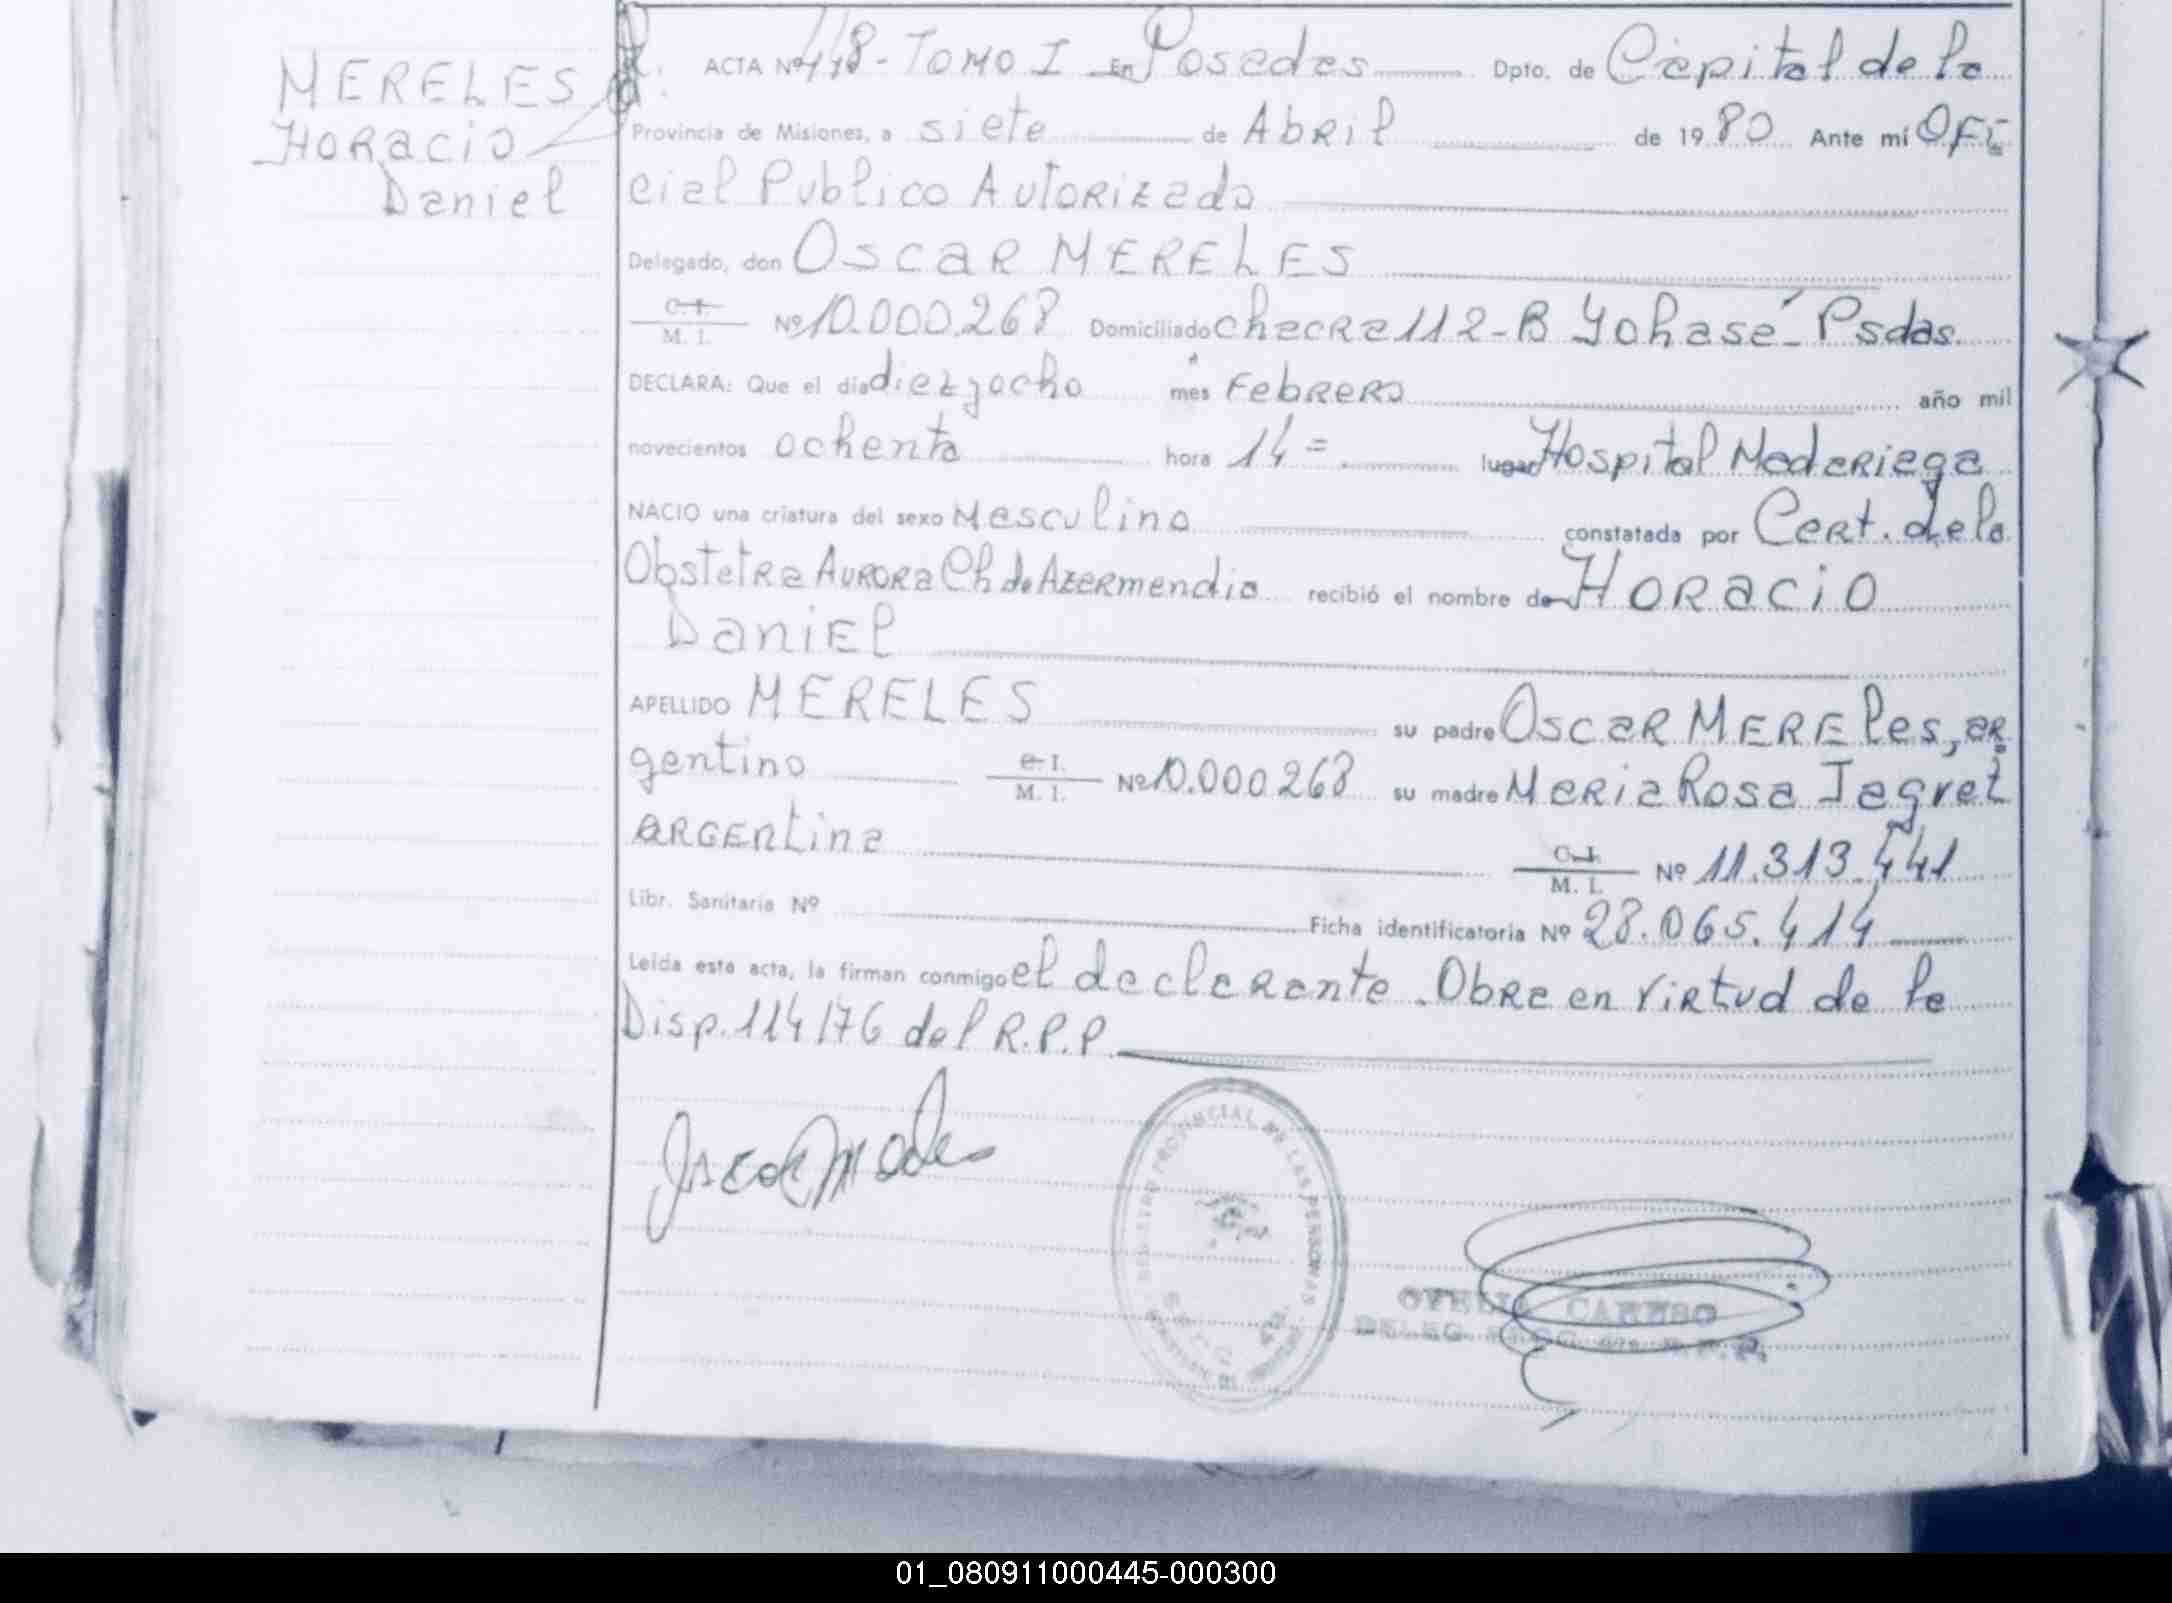 MERELES
Horacio
Daniel
ACTA Nº 448 - Tomo I En Posadas Dpto. de Capital de la
Provincia de Misiones, a siete de Abril de 1980 Ante mí Ofi
cial Publico Autorizado
Delegado, don Oscar MERELES
C. I.
M. I. Nº 10.000.268 Domiciliado chacra 112-B Yohasé - Psdas.
DECLARA: Que el día diezyocho mes Febrero año mil
novecientos ochenta hora 14= lugar Hospital Madariaga
NACIO una criatura del sexo Masculino constatada por Cert. de la
Obstetra Aurora Ch de Azarmendia recibió el nombre de Horacio
Daniel
APELLIDO MERELES su padre Oscar MEREles, ar
gentino C. I.
M. I. Nº 10.000268 su madre Maria Rosa
argentina C. I.
M. I. Nº 11.313.441
Libr. Sanitaria Nº Ficha identificatoria Nº 28.065.414
Leída esta acta, la firman conmigo el declarante. Obra en virtud de la
Disp. 114/76 del R.P.P.
REGISTRO PROVINCIAL DE LAS PERSONAS
OFELIA CARUSO
01_080911000445-000300